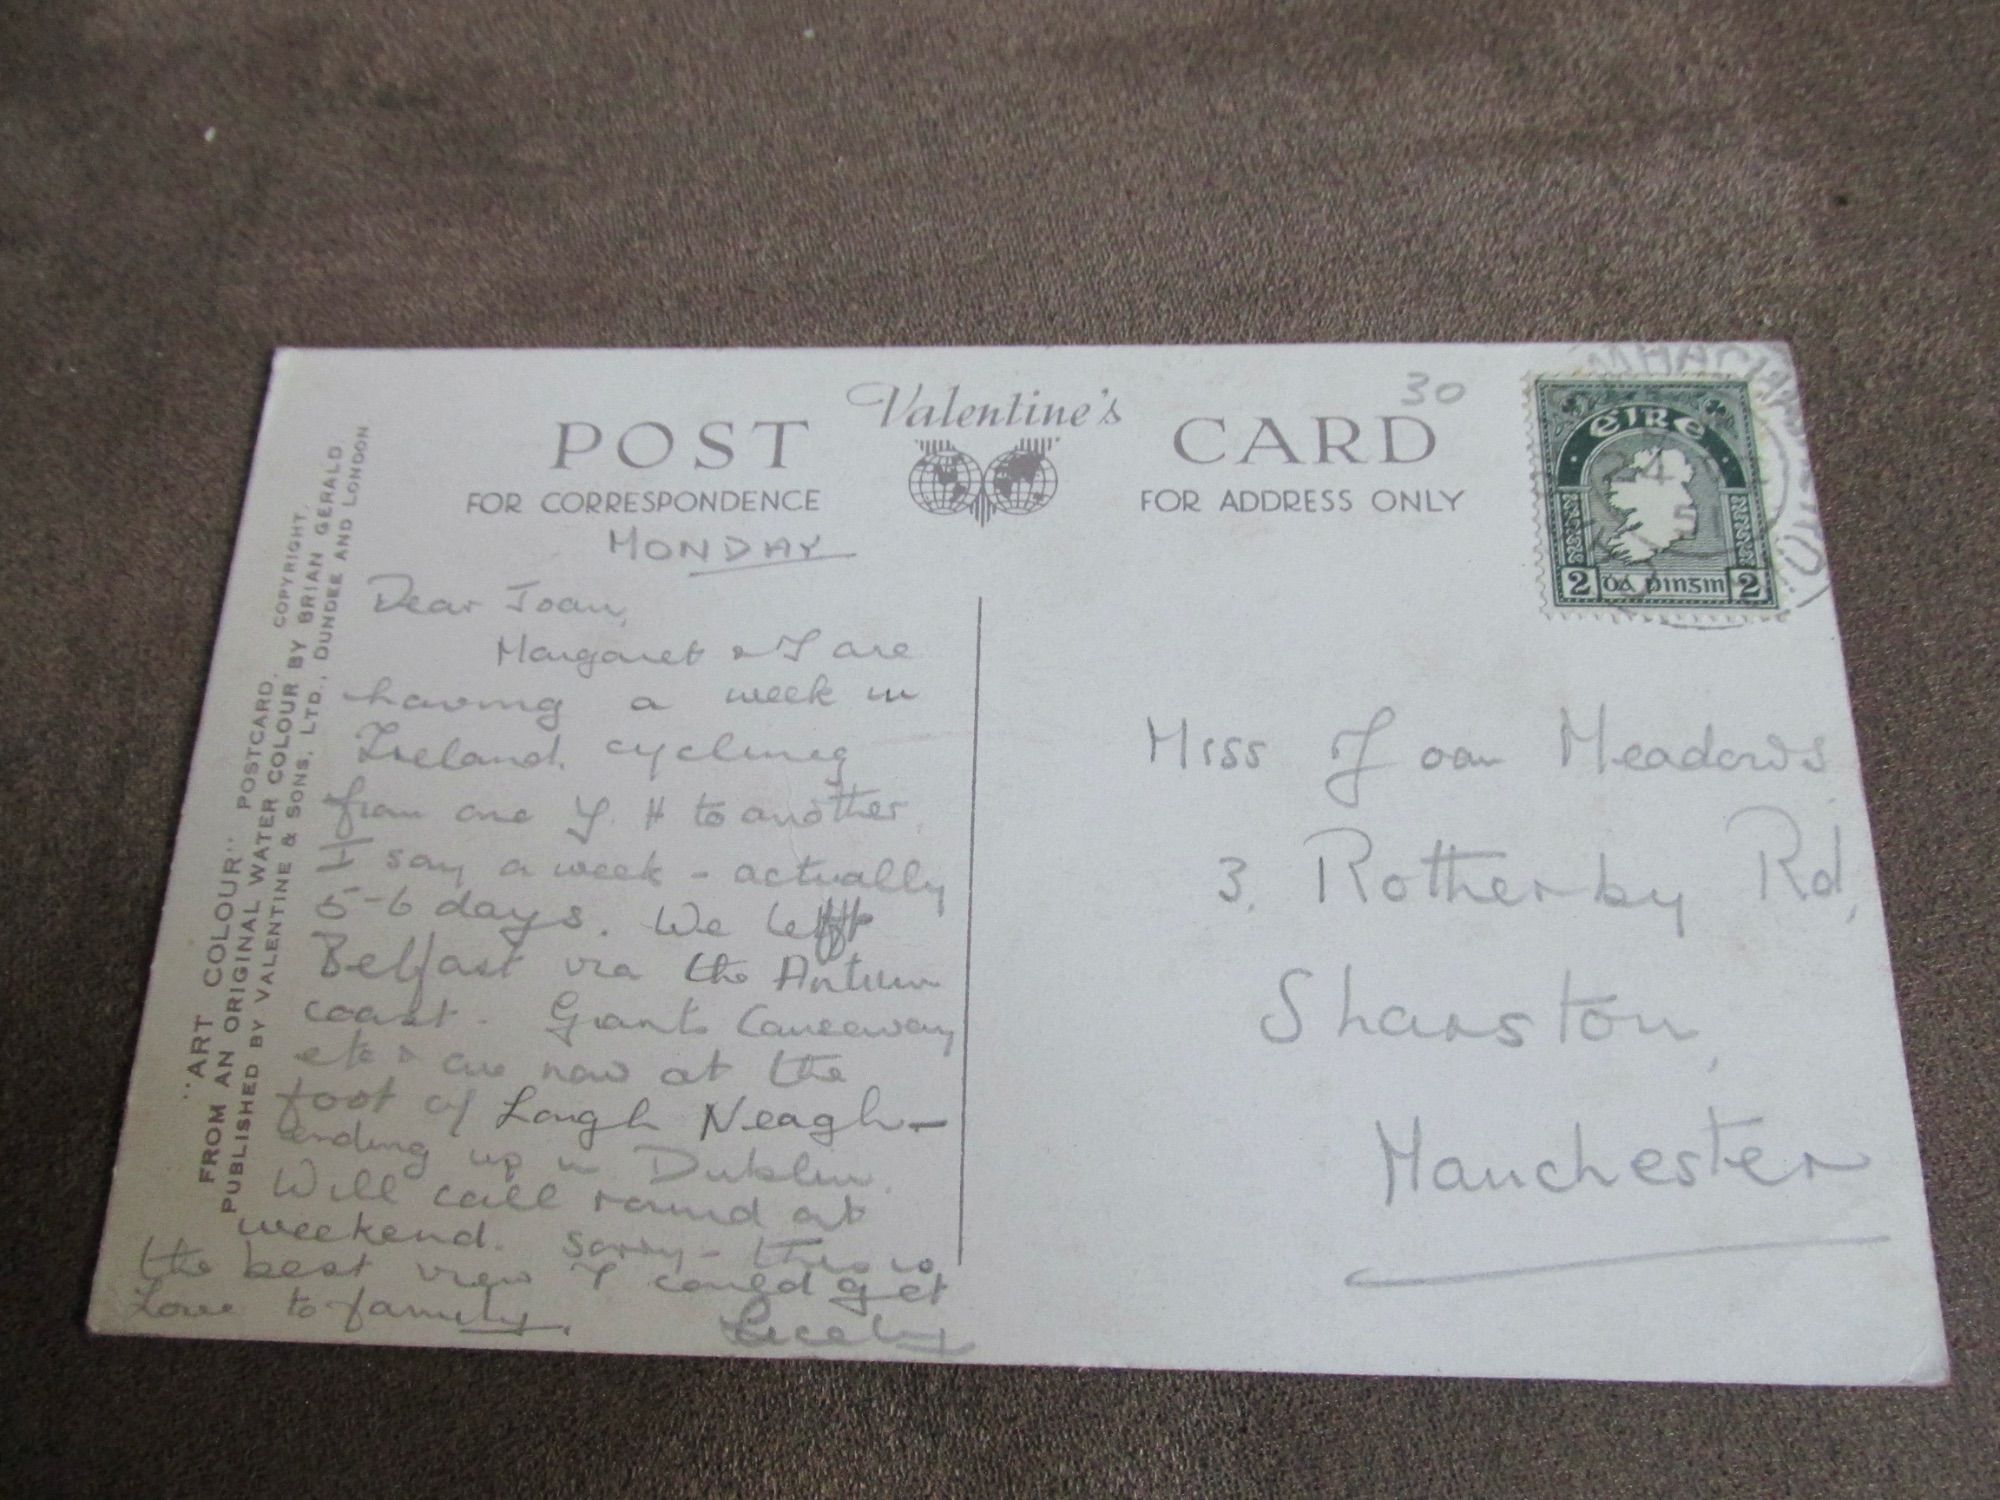 Valentine's
POST CARD
30
FOR CORRESPONDENCE
FOR ADDRESS ONLY
ÉIRE
2 ÓÁ PINGIN 2
"ART COLOUR" POSTCARD. COPYRIGHT.
FROM AN ORIGINAL WATER COLOUR BY BRIAN GERALD
PUBLISHED BY VALENTINE & SONS, LTD., DUNDEE AND LONDON
MONDAY
Dear Joan,
Margaret & I are
having a week in
Ireland. cycling
from one Y. H to another.
I say a week - actually
5-6 days. We left
Belfast via the Antrim
coast. Giants Causeway
etc & are now at the
foot of Lough Neagh -
ending up in Dublin.
Will call round at
weekend. Sorry - this is
the best view I could get
Love to family.
Cecely
Miss Joan Meadows
3, Rotherby Rd,
Sharston,
Manchester